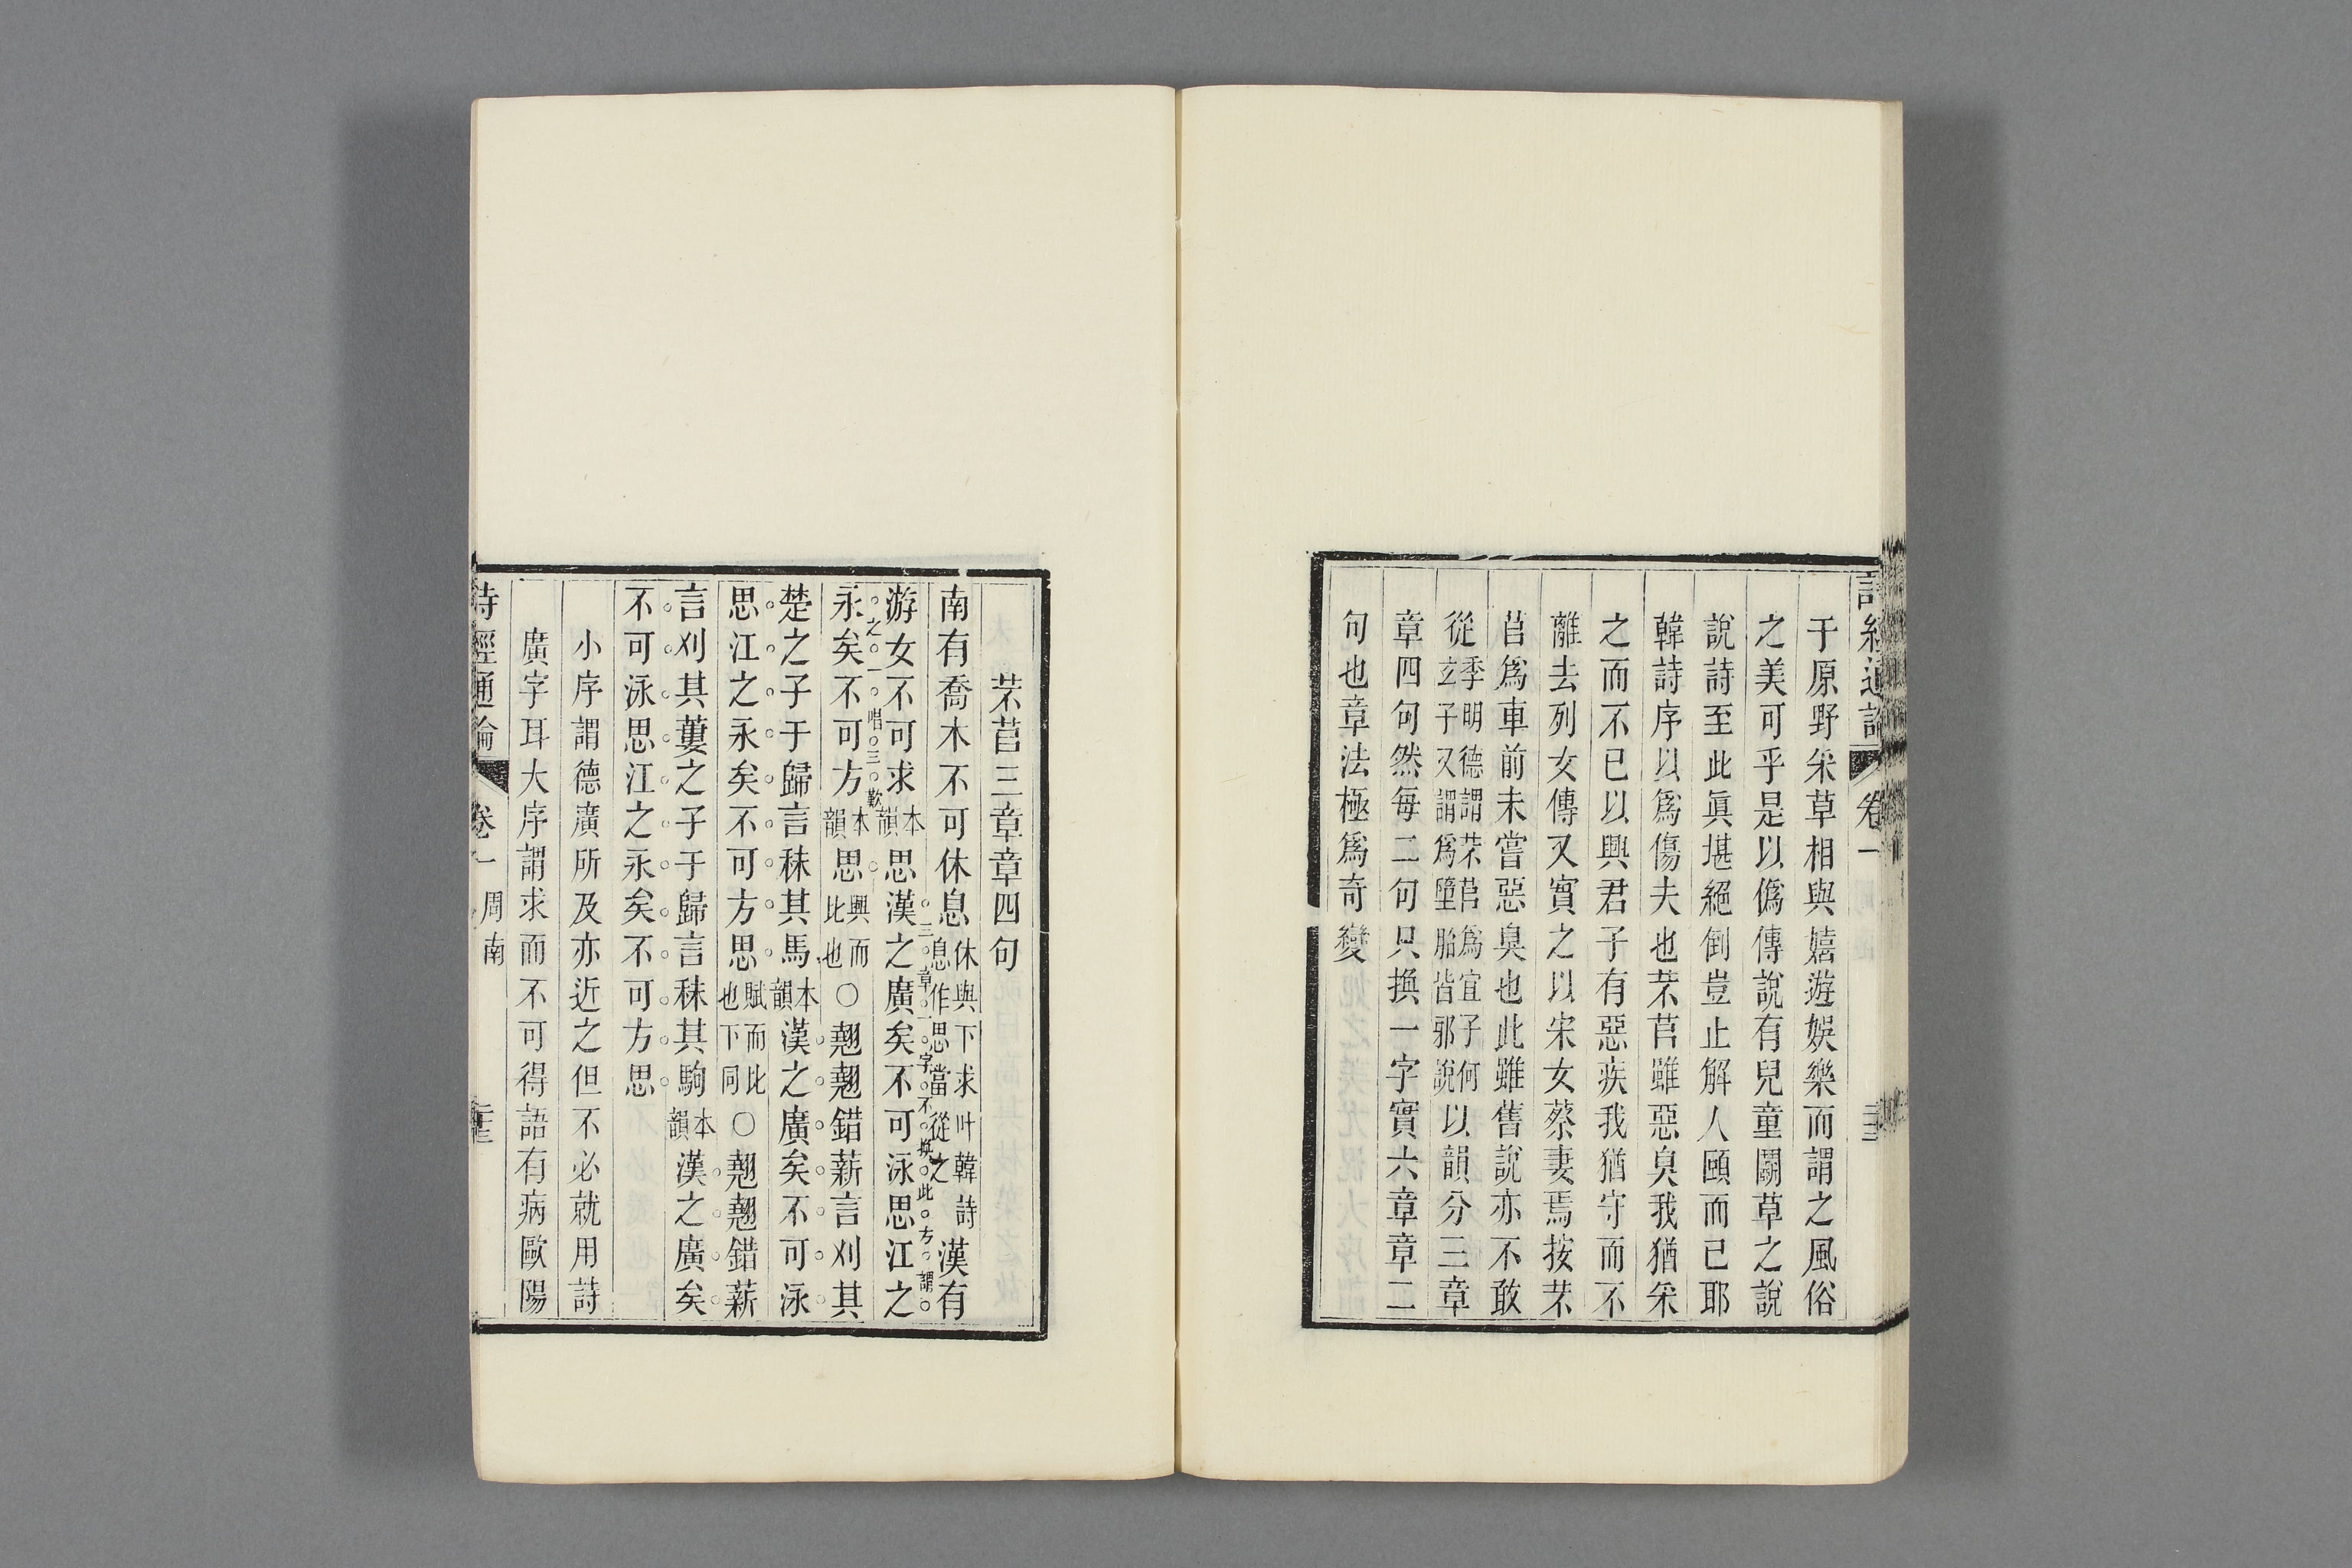 詩經通論 卷一
于原野采草相與嬉遊娛樂而謂之風俗
之美可乎是以僞傳說有兒童鬭草之說
說詩至此眞堪絕倒豈止解人頤而已耶
韓詩序以爲傷夫也芣苢雖惡臭我猶采
之而不已以興君子有惡疾我猶守而不
離去列女傳又實之以宋女蔡妻焉按芣
苢爲車前未嘗惡臭也此雖舊說亦不敢
從季明德謂芣苢爲宜子何玄子又謂爲墮胎皆邪說以韻分三章
章四句然每二句只換一字實六章章二
句也章法極爲奇變
芣苢三章章四句
南有喬木不可休息休與下求叶韓詩息作思當從之漢有
三章一字不換此方謂
游女不可求本韻思漢之廣矣不可泳思江之
之一唱三歎
永矣不可方本韻思興而比也○翹翹錯薪言刈其
楚之子于歸言秣其馬本韻漢之廣矣不可泳
思江之永矣不可方思賦而比也下同○翹翹錯薪
言刈其蔞之子于歸言秣其駒本韻漢之廣矣
不可泳思江之永矣不可方思
小序謂德廣所及亦近之但不必就用詩
廣字耳大序謂求而不可得語有病歐陽
詩經通論 卷一 周南